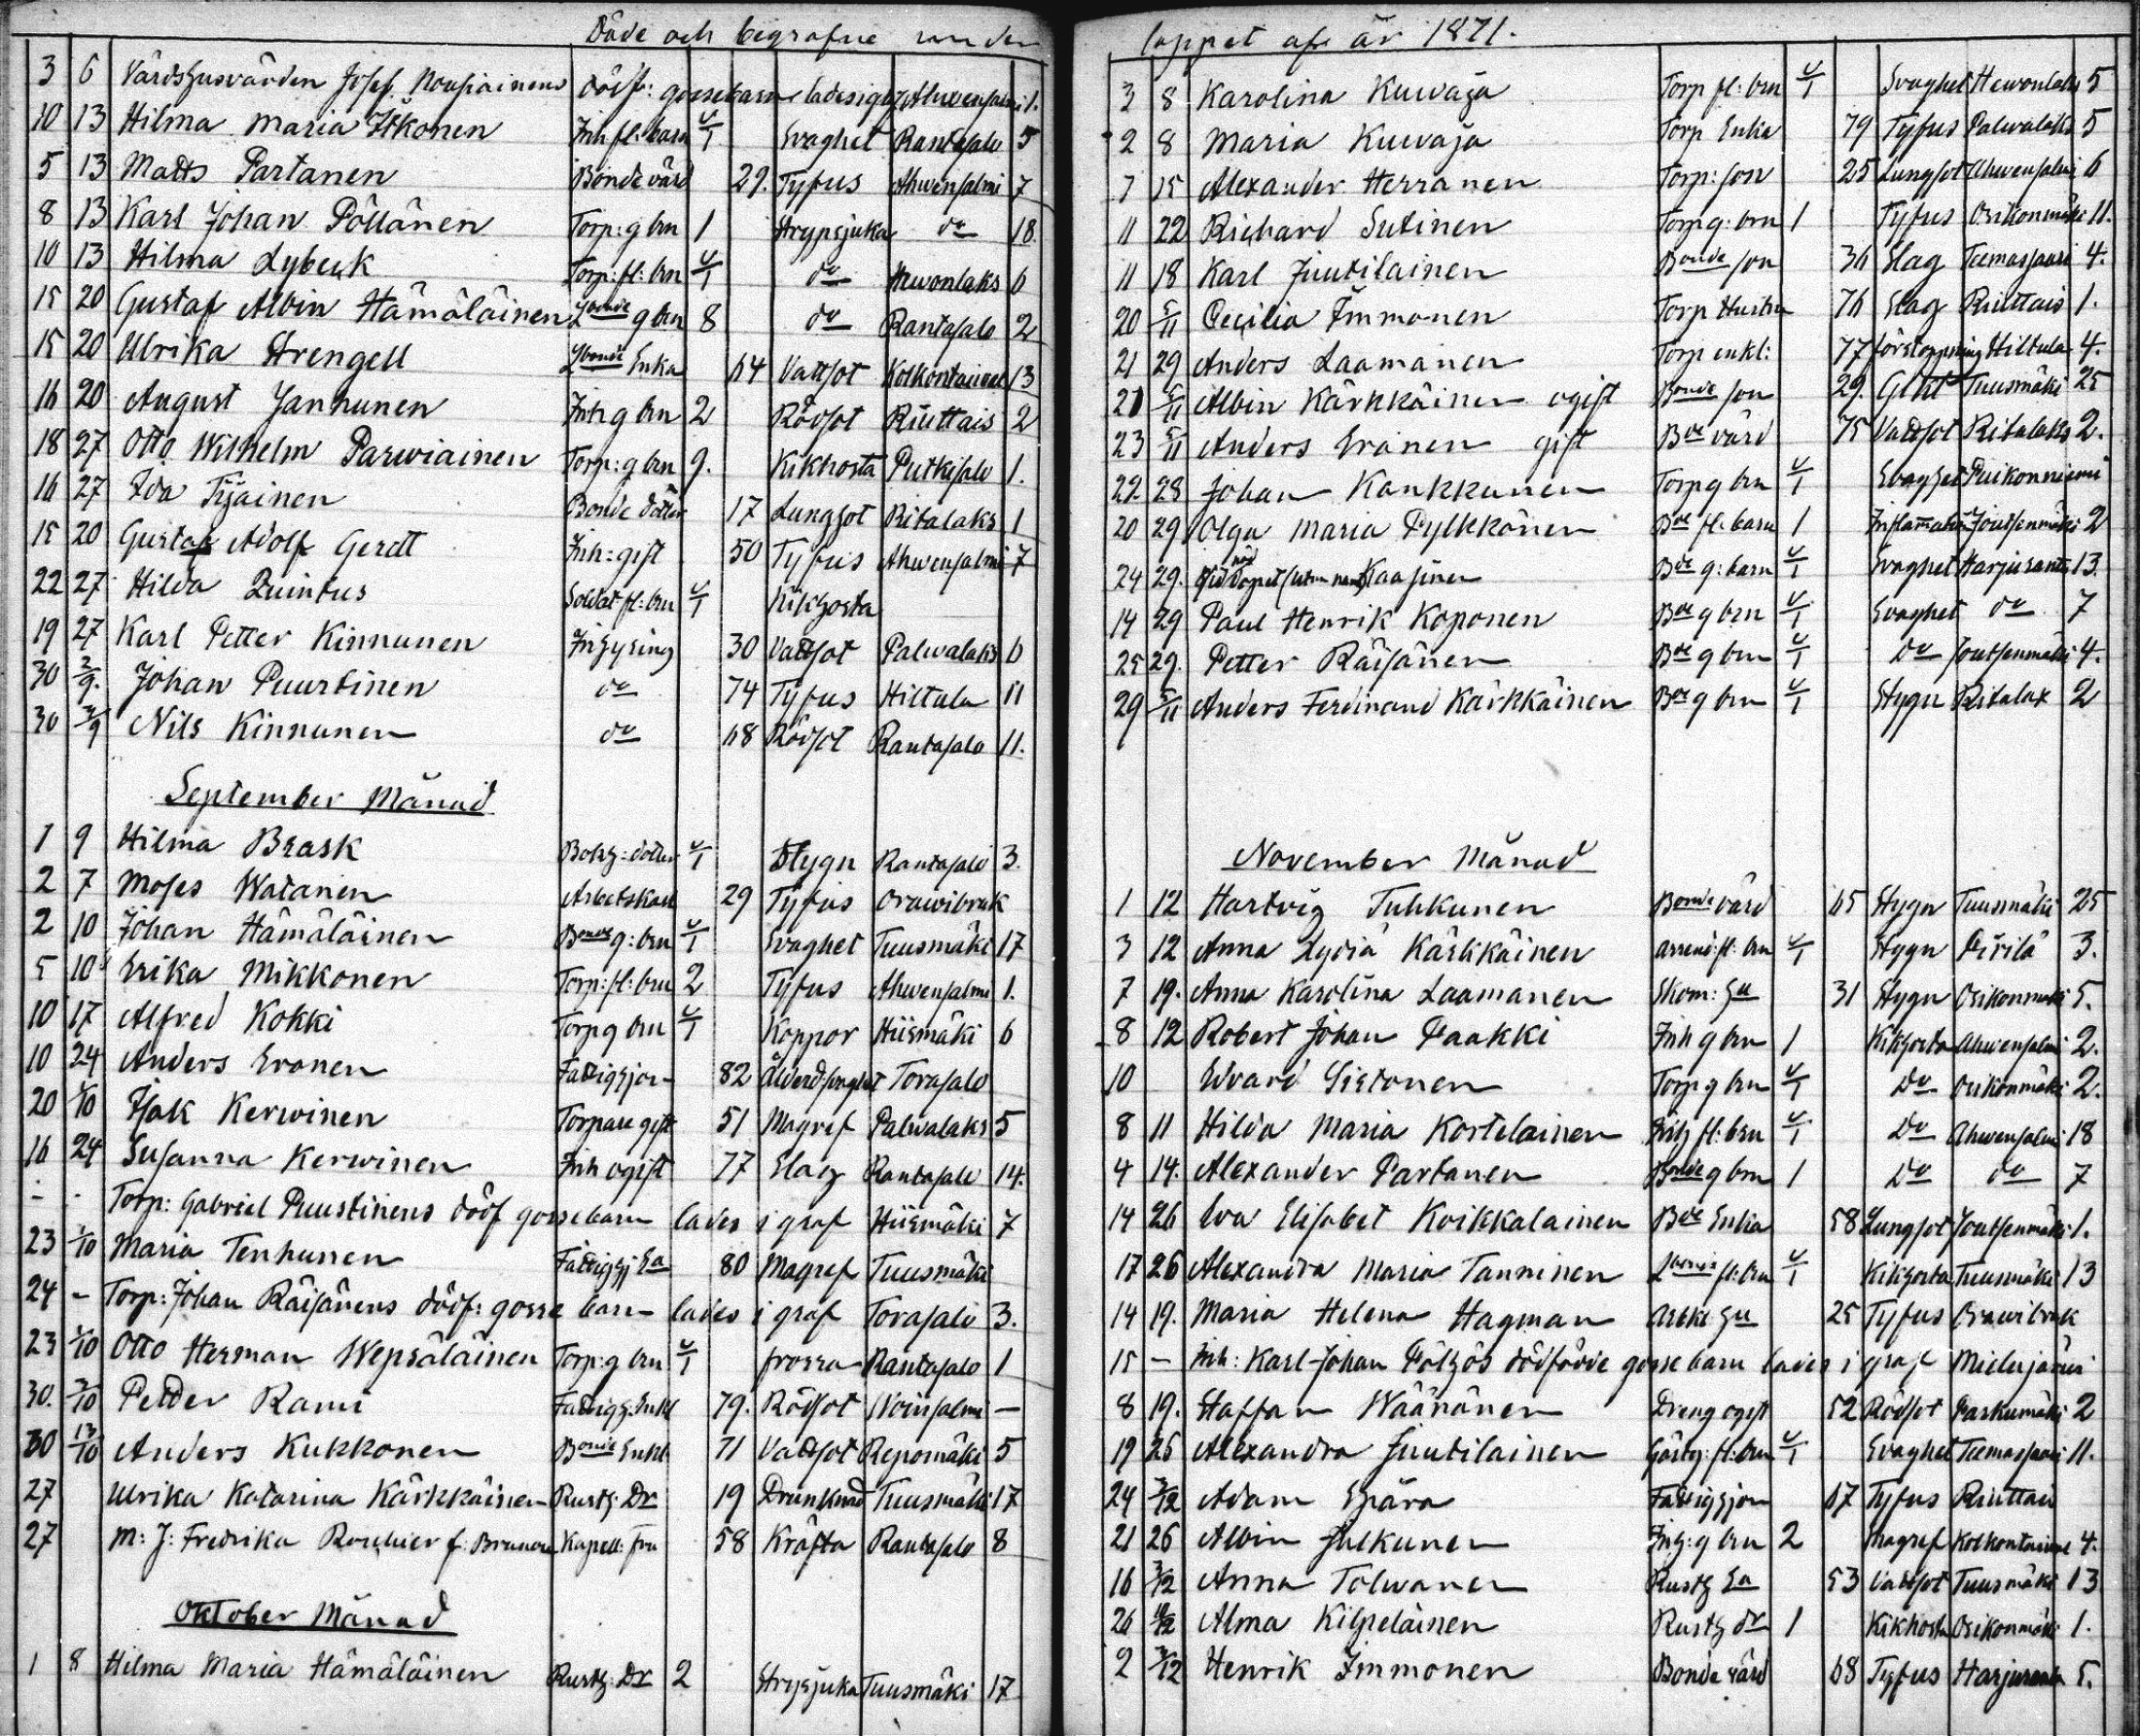 Döde och begrafne under
3 6 Värdshusvärden Josef Nousiainens dödf: gossebarn lades i graf Ahvensalmi 1.
10 13 Hilma Maria Ikonen Inh fl: barn u/1 Svaghet Rantasalo 5
5 13 Matts Partanen Bonde värd 29. Tyfus Ahwensalmi 7
8 13 Karl Johan Pöllänen Torp: g brn 1 Strypsjuka do 18.
10 13 Hilma Lybeck Torp: fl: brn u/1 do Hewonlaks 6
15 20 Gustaf Albin Hämäläinen Lbonde g brn 8 do Rantasalo 2
15 20 Ulrika Strengell Lbonde Enka 64 Vattsot Kolkontaival 13
16 20 August Janhunen Inh g brn 2 Rödsot Riuttais 2
18 27 Otto Wilhelm Parwiainen Torp: g brn 9. Kikhosta Putkisalo 1.
16 27 Ida Tijainen Bonde dotter 17 Lungsot Ritalaks 1
15 20 Gustaf Adolf Gerdt Inh: gift 50 Tyfus Ahwensalmi 7
22 27 Hilda Quintus Soldat fl: brn u/1 Kikhosta
19 27 Karl Petter Kinnunen Inhysing 30 Vattsot Palwalaks 6
30 3/9. Johan Puurtinen do 74 Tyfus Hiltula 11
30 3/9 Nils Kinnunen do 68 Rödsot Rantasalo 11.
September Månad
1 9 Hilma Brask Bokh: dotter u/1 Stygn Rantasalo 3.
2 7 Moses Watanen Arbetskarl 29 Tyfus Orawibruk
2 10 Johan Hämäläinen Bonde g: brn u/1 Svaghet Tuusmäki 17
5 10 Erika Mikkonen Torp: fl: brn 2 Tyfus Ahwensalmi 1.
10 17 Alfred Kokki Torp g brn u/1 Koppor Hiismäki 6
10 24 Anders Eronen Fattighjon 82 Ålderd: svaghet Torasalo
20 1/10 Isak Kerwinen Torpare gift 51 Magref Palwalaks 5
16 24 Susanna Kerwinen Inh ogift 77 Slag Rantasalo 14.
- - Torp: Gabriel Puustinens dödf gossebarn lades i graf Hiismäki 7
23 1/10 Maria Tenhunen Fattighj Ea 80 Magref Tuusmäki
24 - Torp: Johan Räisänens dödf: gosse barn lades i graf Torasalo 3.
23 1/10 Otto Herman Wepsäläinen Torp: g brn u/1 frossa Rantasalo 1
30. 3/10 Petter Rami Fattigh: Enkl 79. Rödsot Woinsalmi -
30 13/10 Anders Kukkonen Bonde Enkl 71 Vattsot Repomäki 5
27 Ulrika Katarina Kärkkäinen Rusth: Dr 19 Drunknad Tuusmäki 17
27 M: J: Fredrika Rouhier f. Brunou Kapell: fru 58 Kräfta Rantasalo 8
Oktober Månad
1 8 Hilma Maria Hämäläinen Rusth: Dr 2 Strypsjuka Tuusmäki 17
loppet af år 1871.
3 8 Karolina Kuwaja Torp fl: brn u/1 Svaghet Hewonlaks 5
2 8 Maria Kuwaja Torp Enka 79 Tyfus Palwalaks 5
7 15 Alexander Herranen Torp: son 25 Lungsot Ahwensalmi 6
11 22 Richard Sutinen Torp g: brn 1 Tyfus Osikonmäki 11.
11 18 Karl Juutilainen Bonde son 36 Slag Teemassaari 4.
20 5/11 Cecilia Immonen Torp Hustru 76 Slag Riuttais 1.
21 29 Anders Laamanen Torp enkl: 77 förstoppning Hiltula 4.
21 5/11 Albin Kärkkäinen ogift Bonde son 29. Gikt Tuusmäki 25
23 5/11 Anders Eronen gift Bde värd 75 Vattsot Ritalaks 2.
22. 28 Johan Kankkunen Torp g brn u/1 Svaghet Puikonniemi
20 29 Olga Maria Pylkkönen Bde fl: barn 1 Inflamation Joutsenmäki 2
24 29. nöddöpet (utan namn) Kaasinen Bde g: barn u/1 Svaghet Harjuranta 13
14 29 Paul Henrik Koponen Bde g brn u/1 Svaghet do 7
25 29. Petter Räisänen Bde g brn u/1 Do Joutsenmäki 4.
29 5/11 Anders Ferdinand Kärkkäinen Bde g brn u/1 Stygn Ritalax 2
November Månad
1 12 Hartvig Tuhkunen Bonde värd 65 Stygn Tuusmäki 25
3 12 Anna Lydia Kärkkäinen arrend: fl: brn u/1 Stygn Pirilä 3.
7 19. Anna Karolina Laamanen Skom: Hu 31 Stygn Osikonmäki 5.
8 12 Robert Johan Paakki Inh g brn 1 Kikhosta Ahwensalmi 2.
10 Edvard Sistonen Torp g brn u/1 Do Osikonmäki 2.
8 11 Hilda Maria Kortelainen Inh fl: brn u/1 Do Ahwensalmi 18
4 14. Alexander Partanen Bonde g brn 1 Do do 7
14 26 Eva Elisabet Koikkalainen Bde Enka 58 Lungsot Joutsenmäki 1.
17 26 Alexandra Maria Tanninen Lbonde fl: brn u/1 Kikhosta Tuusmäki 13
14 19. Maria Helena Hagman Arbk: Hu 25 Tyfus Orawibruk
15 - Inh: Karl Johan Pölhös dödfödde gosse barn lades i graf Mielusjärwi
8 19. Staffan Wäänänen Dreng ogift 52 Rödsot Paskumäki 2
19 26 Alexandra Juutilainen Gästg: fl: brn u/1 Svaghet Teemassaari 11.
24 3/12 Adam Spåra Fattighjon 67 Tyfus Riuttais
21 26 Albin Julkunen Inh: g brn 2 Magref Kolkontaival 4.
16 3/12 Anna Tolwanen Rusth Ea 53 Vattsot Tuusmäki 13
26 10/12 Alma Kilpeläinen Rusth dr 1 Kikhosta Osikonmäki 1.
2 3/12 Henrik Immonen Bonde värd 68 Tyfus Harjuranta 5.